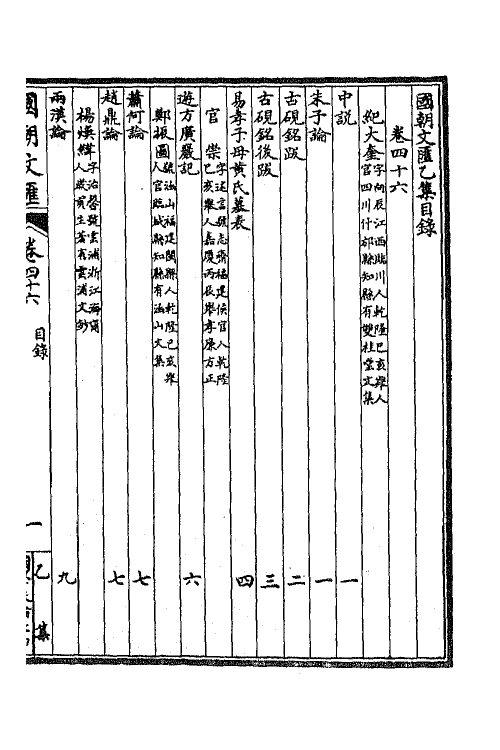 國朝文匯乙集目錄
卷四十六
紀大奎字向辰江西臨川人乾隆己亥舉人
官四川什邡縣知縣有雙桂堂文集
中説 一
朱子論 一
古硯銘跋 二
古硯銘後跋 三
易孝子母黃氏墓表 四
官崇字述言號志齋福建侯官人乾隆
己亥舉人嘉慶丙辰舉孝廉方正
遊方廣巖記 六
鄭振圖號涵山福建閩縣人乾隆己亥舉
人官臨城縣知縣有涵山文集
蕭何論 七
趙鼎論 七
楊煥綸字治磬號雲浦浙江海甯
人歲貢生著有雲浦文鈔
兩漢論 九
國朝文匯 卷四十六 目錄 一 乙集